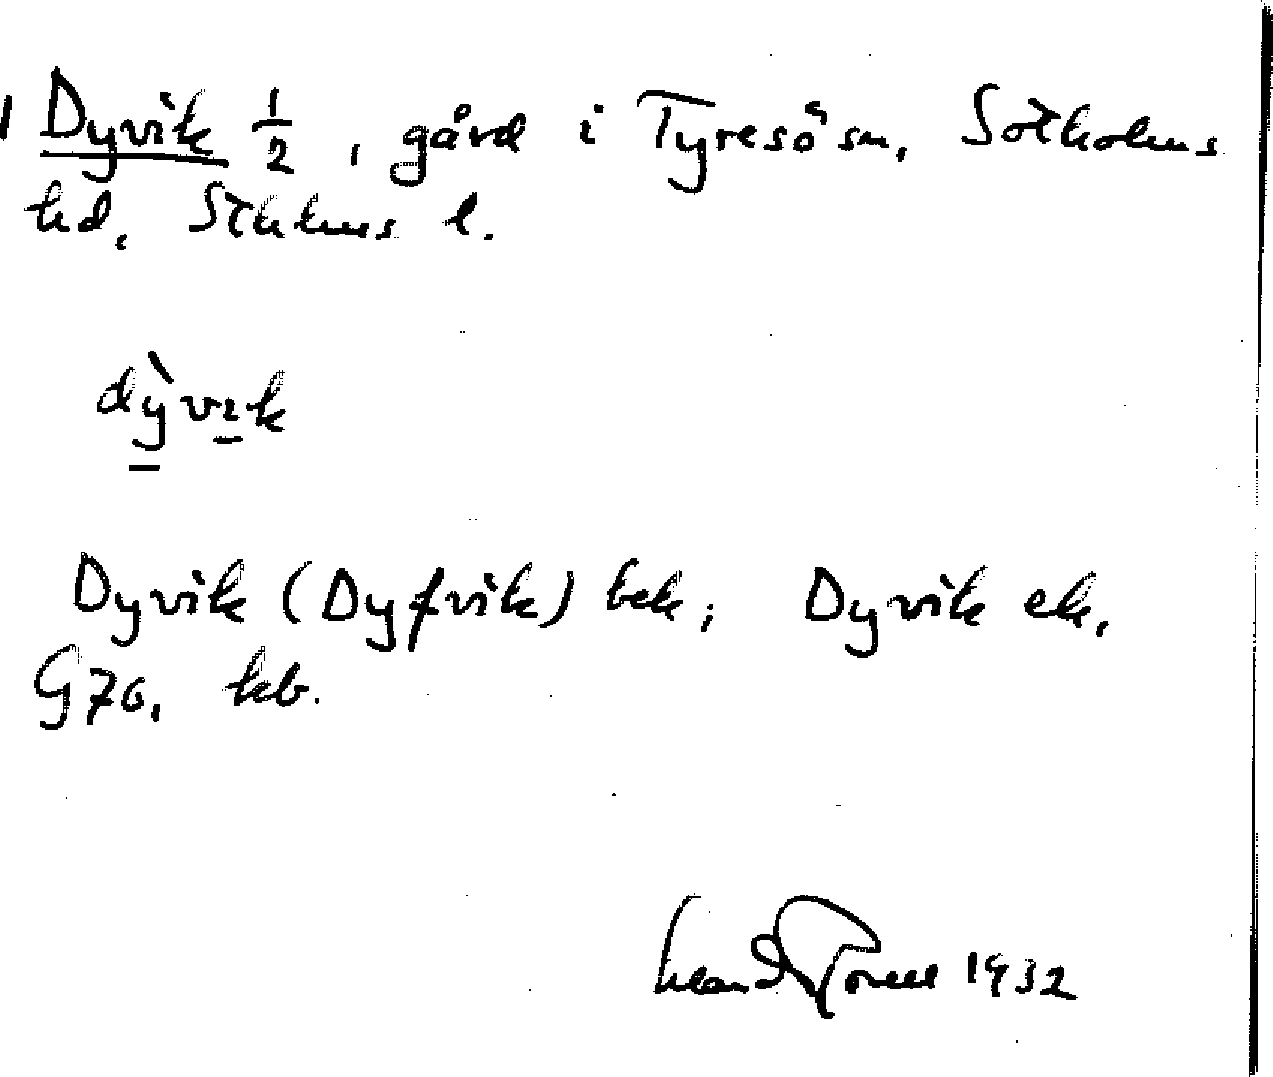 Dyvik 1/2, gård i Tyresö sn, Sotholms
hd, Sthlms l.
dỳvɪk
Dyvik (Dyfvik) bek; Dyvik ek,
G70, kb.
1932